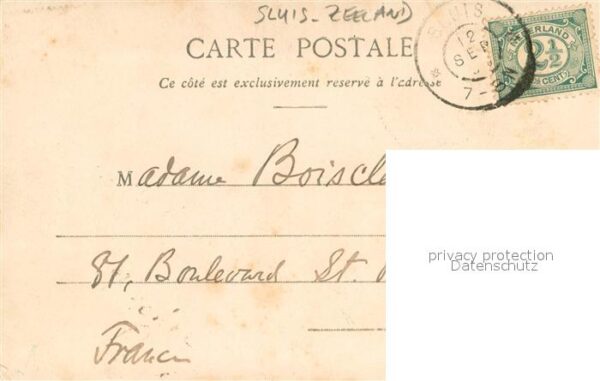 SLUIS-ZEELAND
CARTE POSTALE
Ce côté est exclusivement reservé à l'adresse
SLUIS
7-8N
NEDERLAND
2½
CENT
Madame Boiscl
81, Boulevard St.
France
privacy protection
Datenschutz